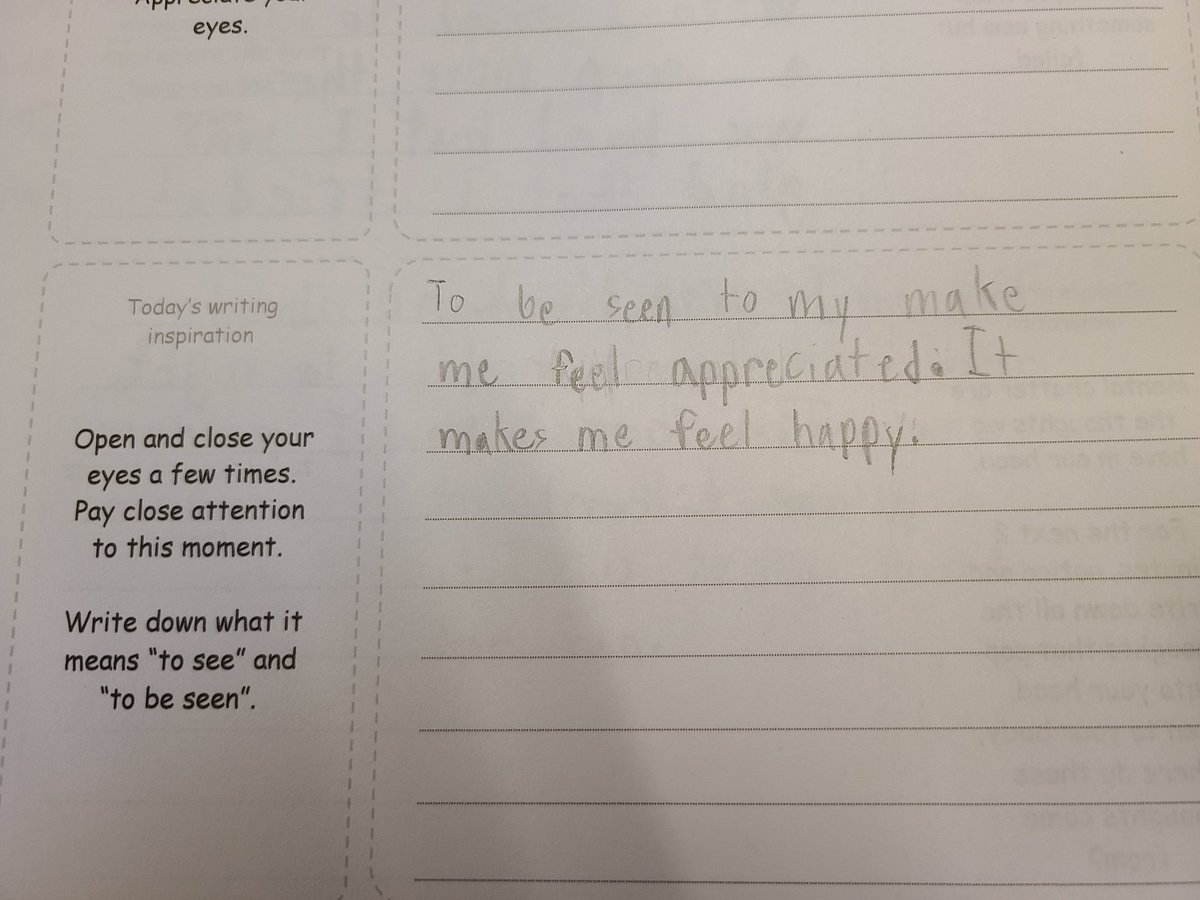 eyes.
Today's writing
inspiration
Open and close your
eyes a few times.
Pay close attention
to this moment.
Write down what it
means "to see" and
"to be seen".
To be seen to my make
me feel appreciated. It
makes me feel happy.